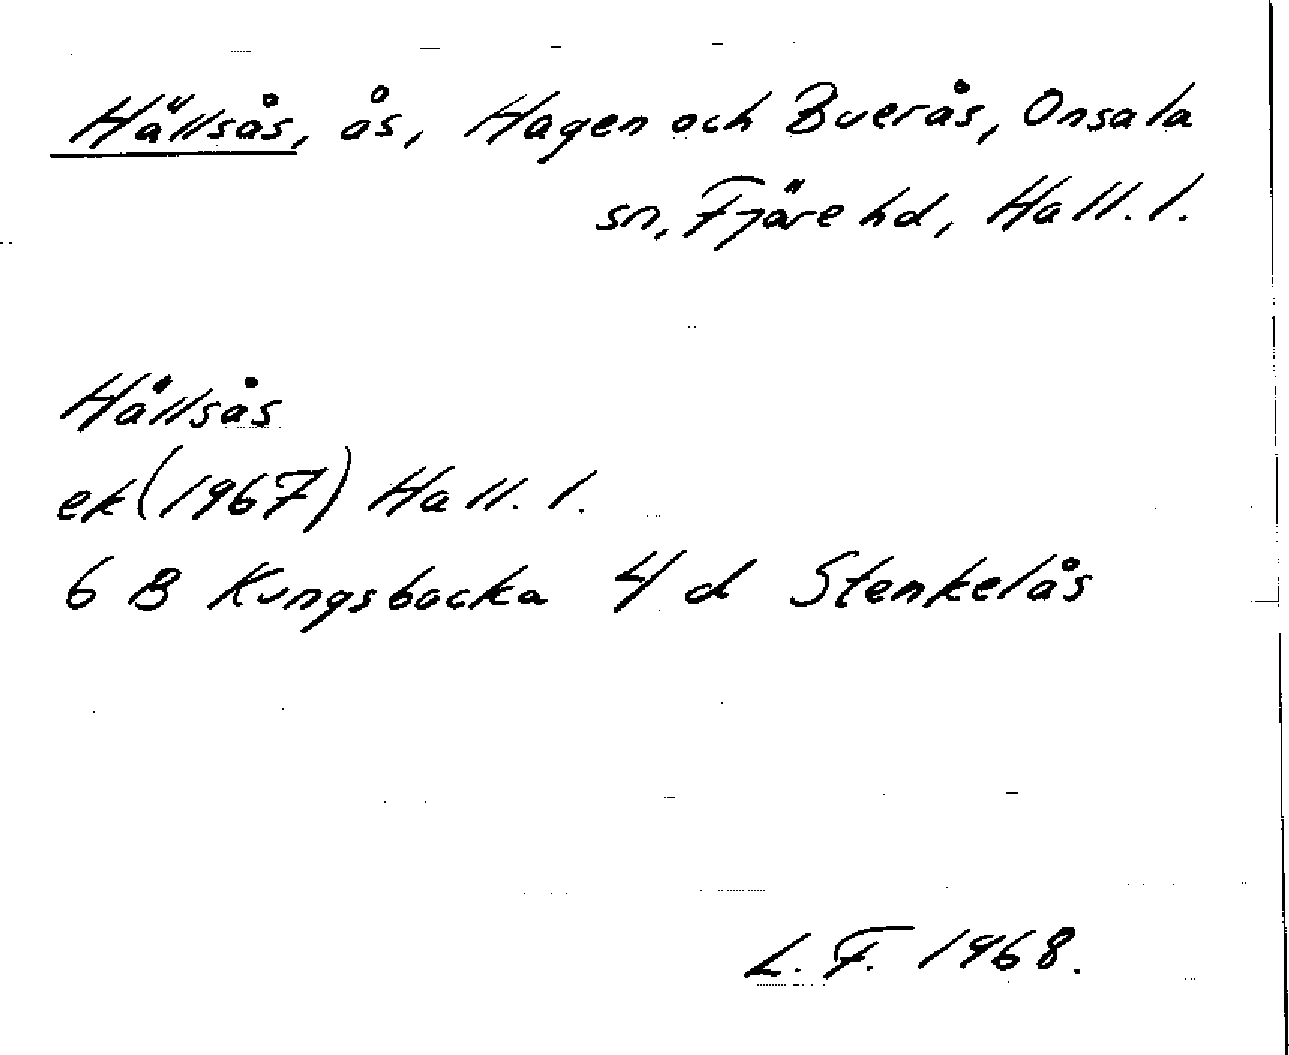 Hällsås, ås, Hagen och Buerås, Onsala
sn, Fjäre hd, Hall. l.
Hällsås
ek (1967) Hall. l.
6 B Kungsbacka 4 d Stenkelås
L. F. 1968.